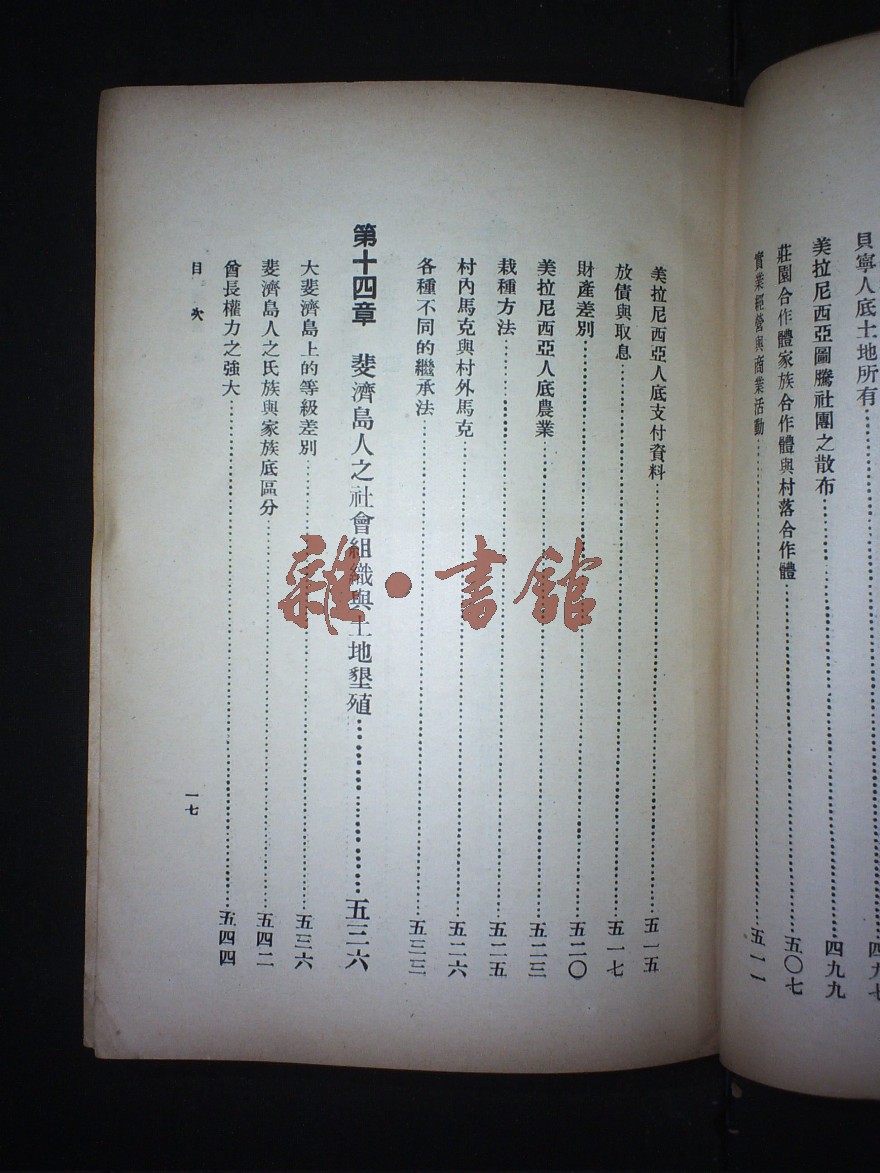 貝寧人底土地所有………四九七
美拉尼西亞圖騰社團之散布………四九九
莊園合作體家族合作體與村落合作體………五〇七
實業經營與商業活動………五一一
美拉尼西亞人底支付資料………五一五
放債與取息………五一七
財產差別………五二〇
美拉尼西亞人底農業………五二三
栽種方法………五二五
村內馬克與村外馬克………五二六
各種不同的繼承法………五三三
第十四章 斐濟島人之社會組織與土地墾殖………五三六
大斐濟島上的等級差別………五三六
斐濟島人之氏族與家族底區分………五四二
酋長權力之強大………五四四
目次
一七
雜·書館